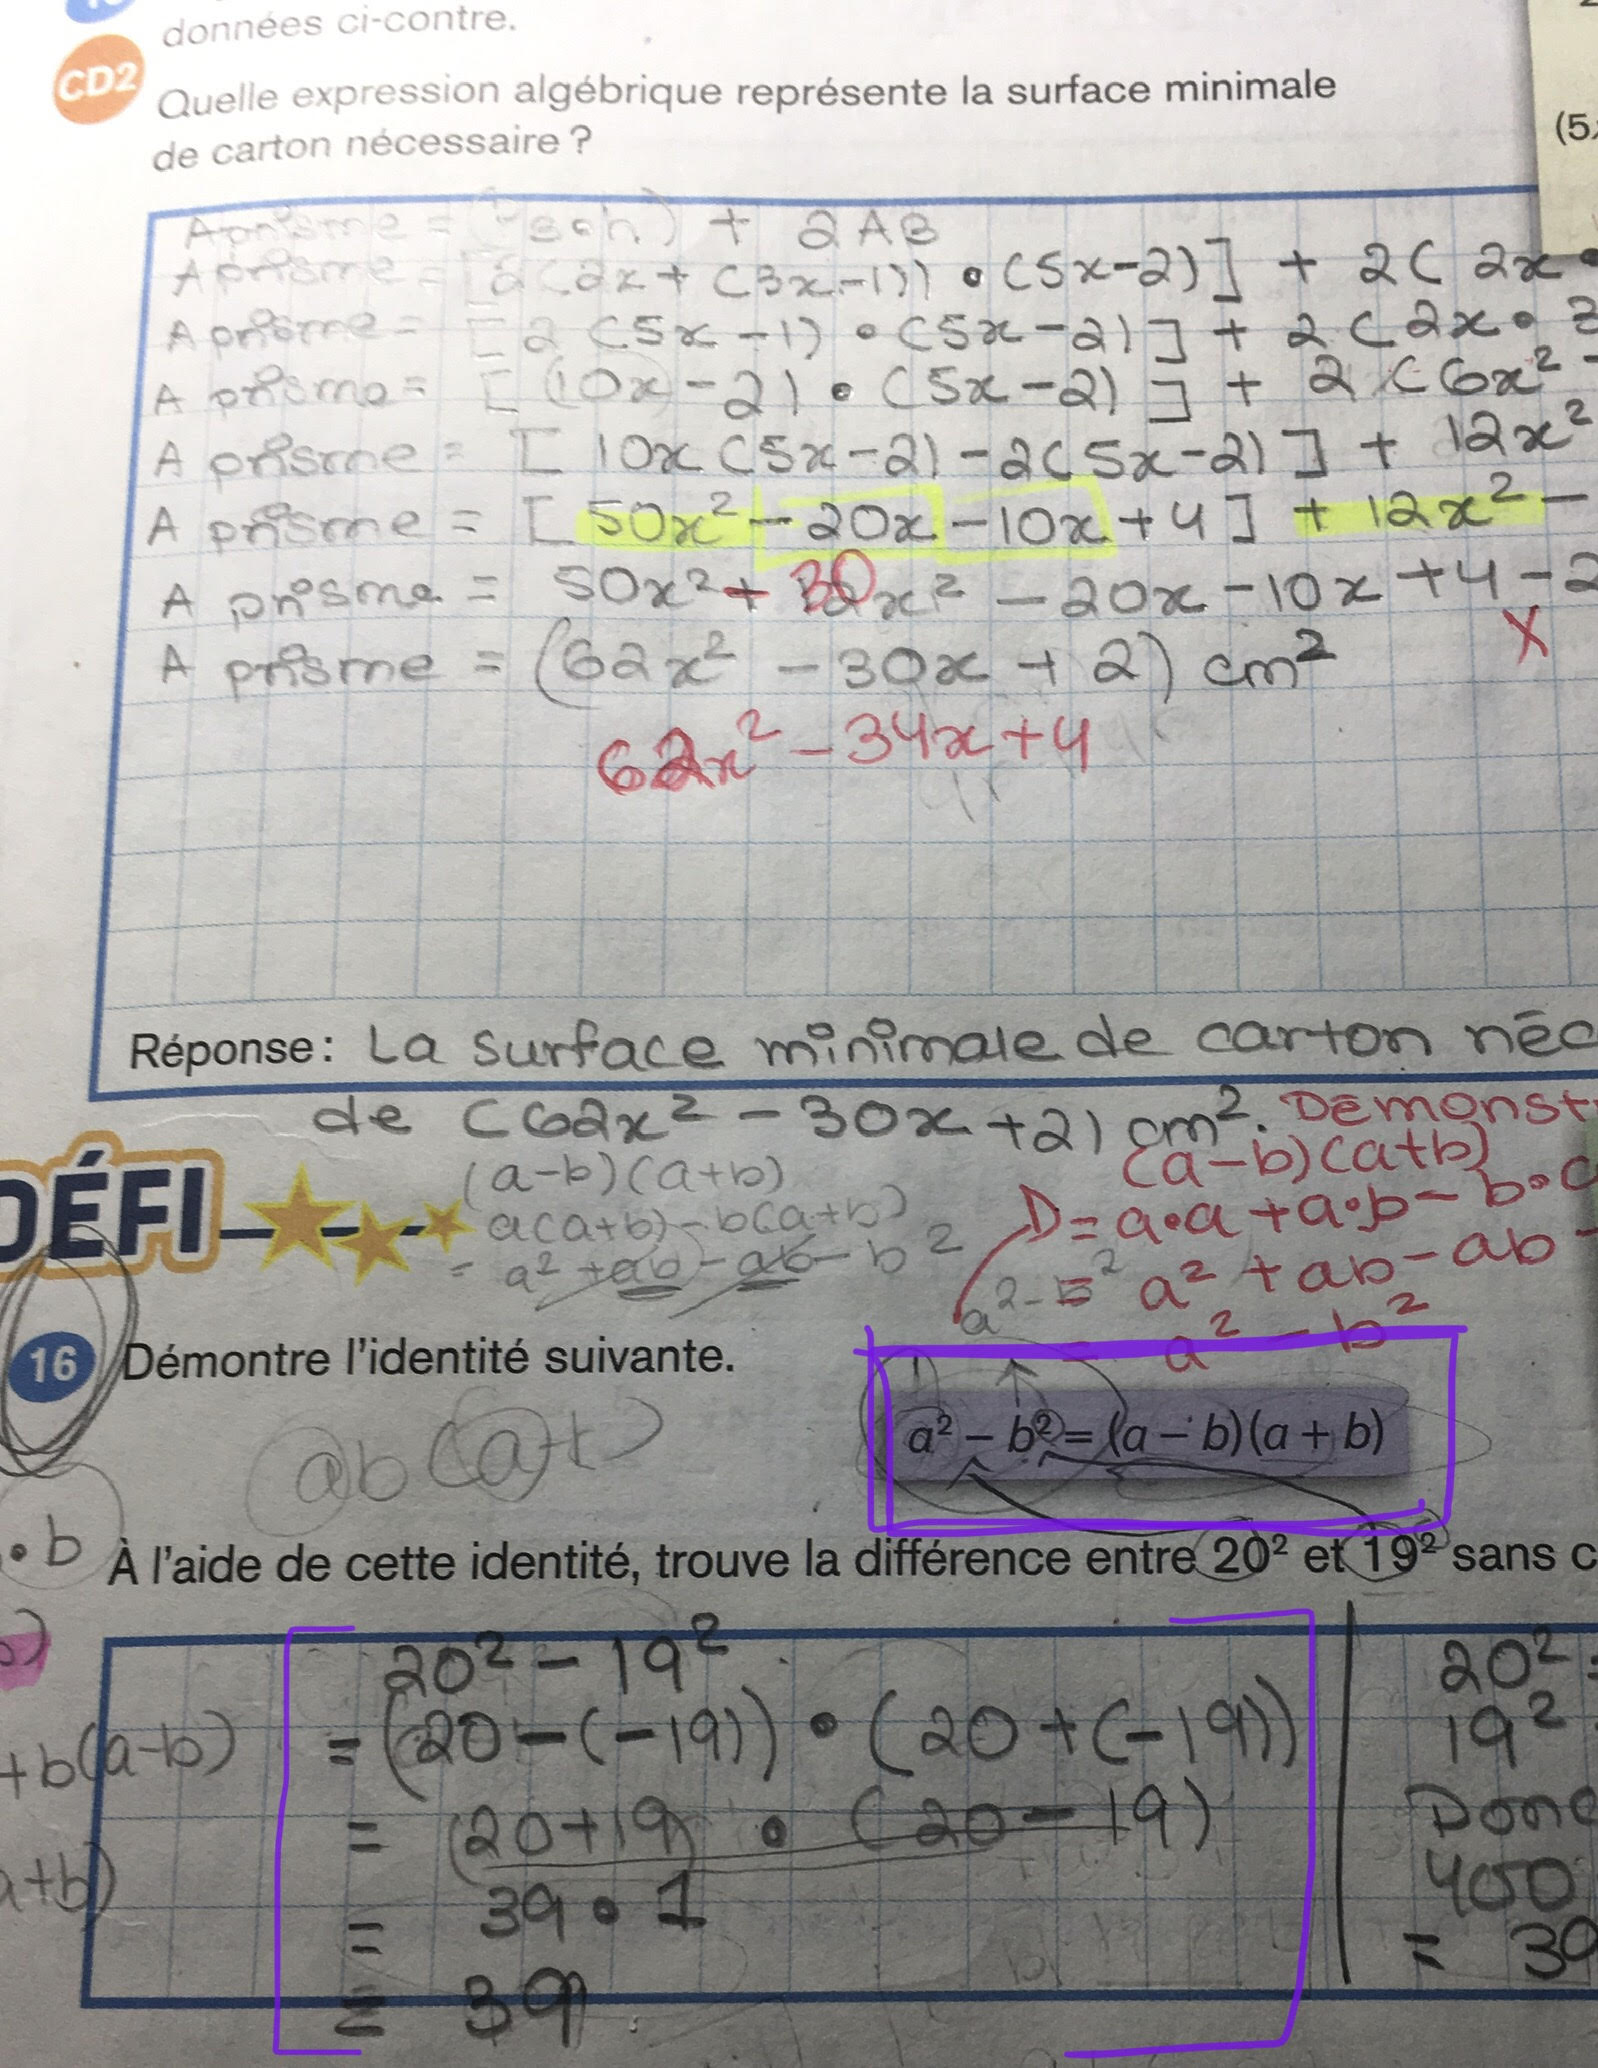 données ci-contre.
CD2 Quelle expression algébrique représente la surface minimale
de carton nécessaire ?
(5
A prisme = ( ) + 2AB
A prisme = [2(2x + (3x-1)) • (5x-2)] + 2( 2x •
A prisme = [2(5x-1) • (5x-2)] + 2(2x •
A prisme = [(10x-2) • (5x-2)] + 2(6x² -
A prisme = [10x(5x-2) - 2(5x-2)] + 12x²
A prisme = [50x² - 20x - 10x + 4] + 12x² -
A prisme = 50x² + x² - 20x - 10x + 4 - 2
30
X
A prisme = (62x² - 30x + 2) cm²
62x² - 34x + 4
Réponse : La surface minimale de carton
de (62x² - 30x + 2) cm².
(a-b)(a+b)
(a-b)(a+b)
DÉFI
a(a+b) - b(a+b)
D = a•a + a•b - b•
= a² + ab - ab - b²
a² - b²
= a² + ab - ab -
= a² - b²
16 Démontre l'identité suivante.
a² - b² = (a - b)(a + b)
• b
À l'aide de cette identité, trouve la différence entre 20² et 19² sans
20² - 19²
20²
= (20 - (-19)) • (20 + (-19))
19²
+b(a-b)
= (20+19) • (20 - 19)
a+b)
= 39 • 1
400
= 39
= 39